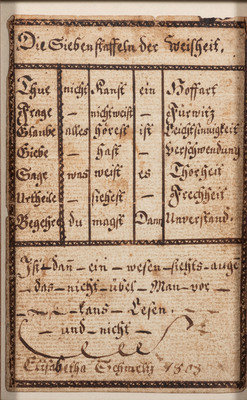 Die Siebenstaffeln der Weisheit.
Thue nicht Kanst ein Hoffart
Frage — nichtweist — Fürwitz
Glaube alles hörest ist Leichtsinnigkeit
Giebe — hast — Verschwendung
Sage was weist es Thorheit
Urtheile — siehest — Frechheit
Begehre du magst Dann Unverstand.
Ist — dañ — ein — wesen — siehts — auge
das — nicht — übel — Man — vor —
— kans — Lesen. —
— und — nicht —
Elisabetha 1803